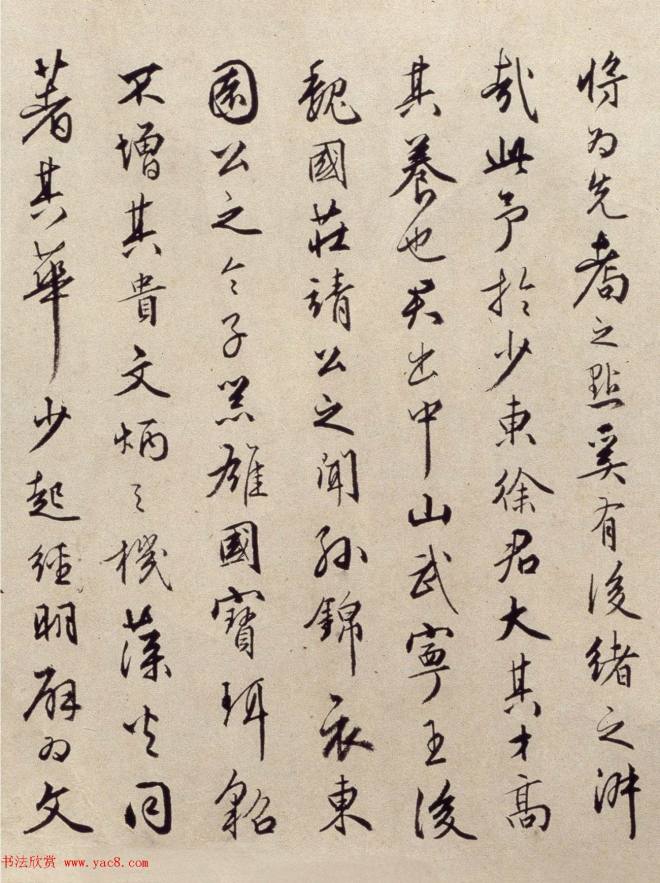 将为先耇之點奚有後緒之
哉此予於少東徐君大其才高
其養也君出中山武寧王後
魏國莊靖公之聞孫錦衣東
園公之令子器雄國寶珥貂
不增其貴文炳之機藻火同
著其華少起經明辟为文
书法欣赏 www.yac8.com